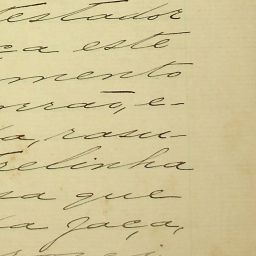 testador
ça este
mento
rrão, e-
da, rasu-
trelinha
sa que
ka faça,